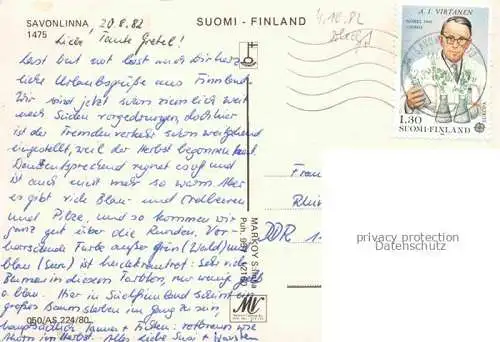 SAVONLINNA 20.8.82
1475
SUOMI - FINLAND
4.10.82
A. I. VIRTANEN
NOBEL 1945
CHEMIA
EUROPA
1,30
SUOMI-FINLAND
Liebe Tante Gretel!
Last but not least auch Dir herz-
liche Urlaubsgrüße aus Finnland.
Wir sind jetzt schon ziemlich weit
nach Süden vorgedrungen, doch hier
ist der Fremdenverkehr schon weitgehend
eingestellt, weil der Herbst begonnen hat.
Dementsprechend regnet es oft und
ist auch nicht mehr so warm. Aber
es gibt viele Blau- und Erdbeeren
und Pilze, und so kommen wir
ganz gut über die Runden. Vor-
herrschende Farbe außer grün (Wald) und
blau (Seen) ist heidekrautrot: Sehr viele
Blumen in diesem Farbton, nur wenig gelb
o. blau. Hier in Südfinnland scheint ein
großes Baumsterben im Gang zu sein,
hauptsächlich Tannen + Fichten: rotbraun wie
Ahorn im Herbst. Alles Liebe Susi + Karsten
Frau
DDR 1
MARKOY S-linna
Puh.
MV
050/AS 224/80
privacy protection
Datenschutz